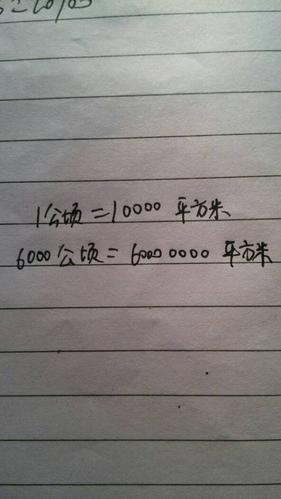 1公顷=10000 平方米
6000公顷=60000000 平方米